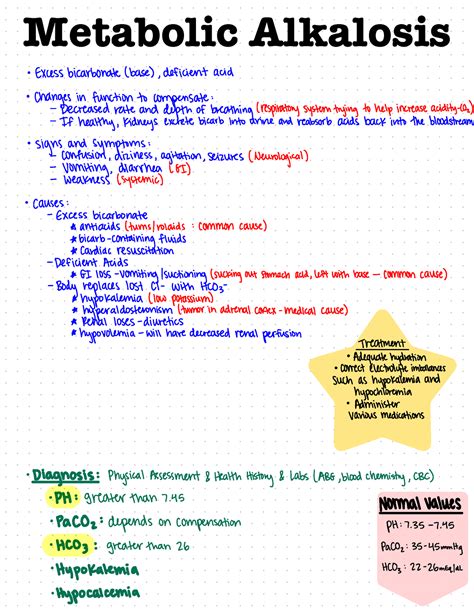 Metabolic Alkalosis
• Excess bicarbonate (base), deficient acid
• Changes in function to compensate:
– Decreased rate and depth of breathing (respiratory system trying to help increase acidity-CO₂)
– If healthy, kidneys excrete bicarb into urine and reabsorb acids back into the bloodstream
• Signs and Symptoms:
– Confusion, dizziness, agitation, seizures (Neurological)
– Vomiting, diarrhea (GI)
– Weakness (systemic)
• Causes:
– Excess bicarbonate
* antiacids (tums/rolaids : common cause)
* bicarb-containing fluids
* Cardiac resuscitation
– Deficient Acids
* GI loss-vomiting/suctioning (sucking out stomach acid, left with base — common cause)
– Body replaces lost Cl- with HCO₃-
* hypokalemia (low potassium)
* hyperaldosteronism (tumor in adrenal cortex-medical cause)
* Renal loses-diuretics
* hypovolemia - will have decreased renal perfusion
Treatment
• Adequate hydration
• Correct electrolyte imbalances
such as hypokalemia and
hypochloremia
• Administer
various medications
• Diagnosis: Physical Assessment & Health History & Labs (ABG, blood chemistry, CBC)
• PH: greater than 7.45
• PaCO₂: depends on compensation
• HCO₃ : greater than 26
• Hypokalemia
• Hypocalcemia
Normal Values
PH: 7.35 -7.45
PaCO₂ : 35-45mmHg
HCO₃ : 22-26mEq/L